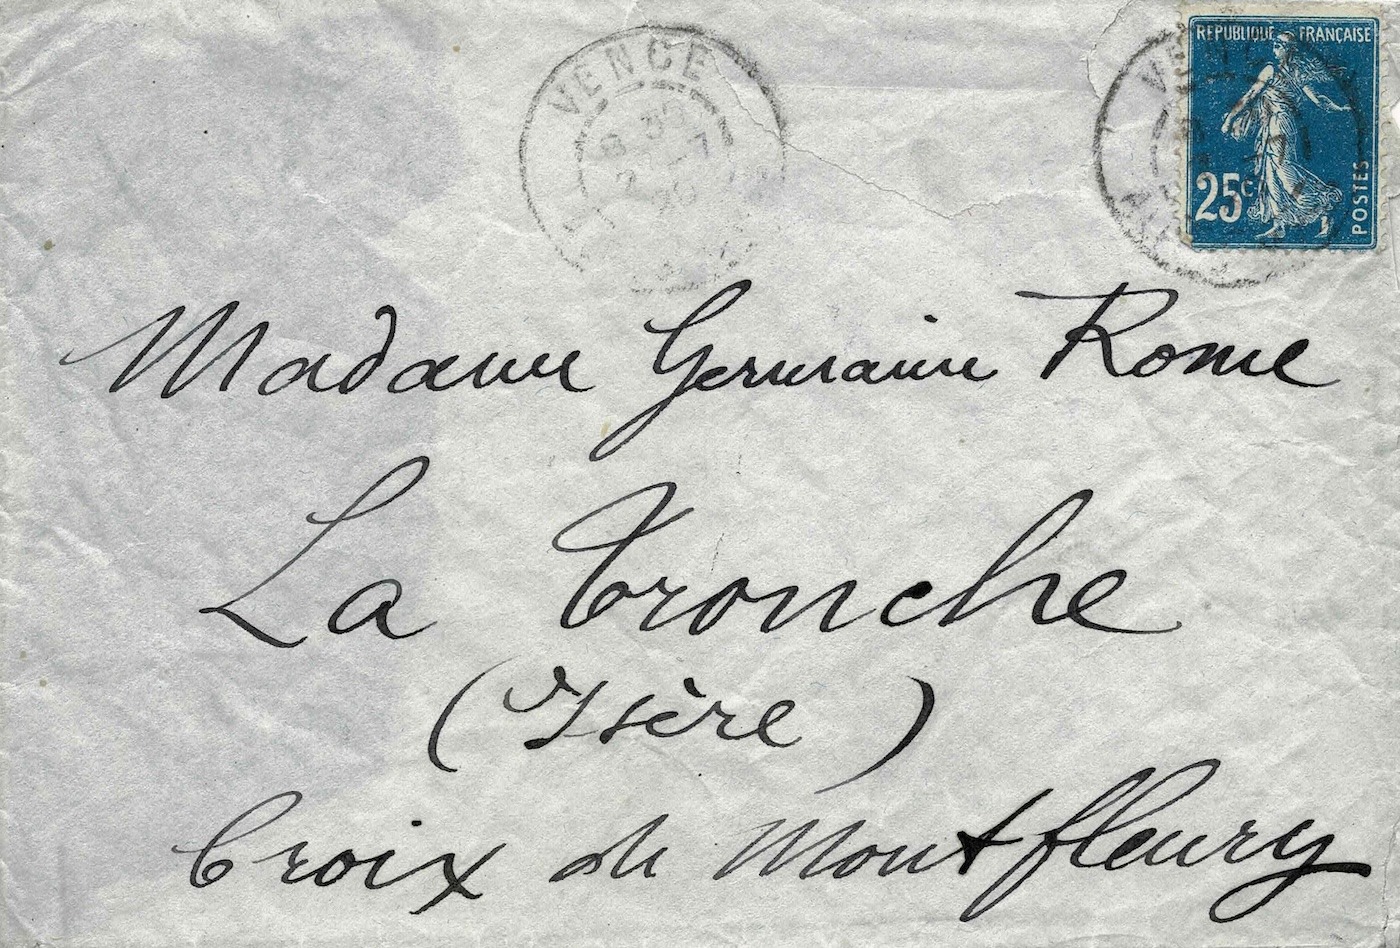 VENCE
RÉPUBLIQUE FRANÇAISE
25c
POSTES
Madame Germaine Rome
La Tronche
(Isère)
Croix de Montfleury